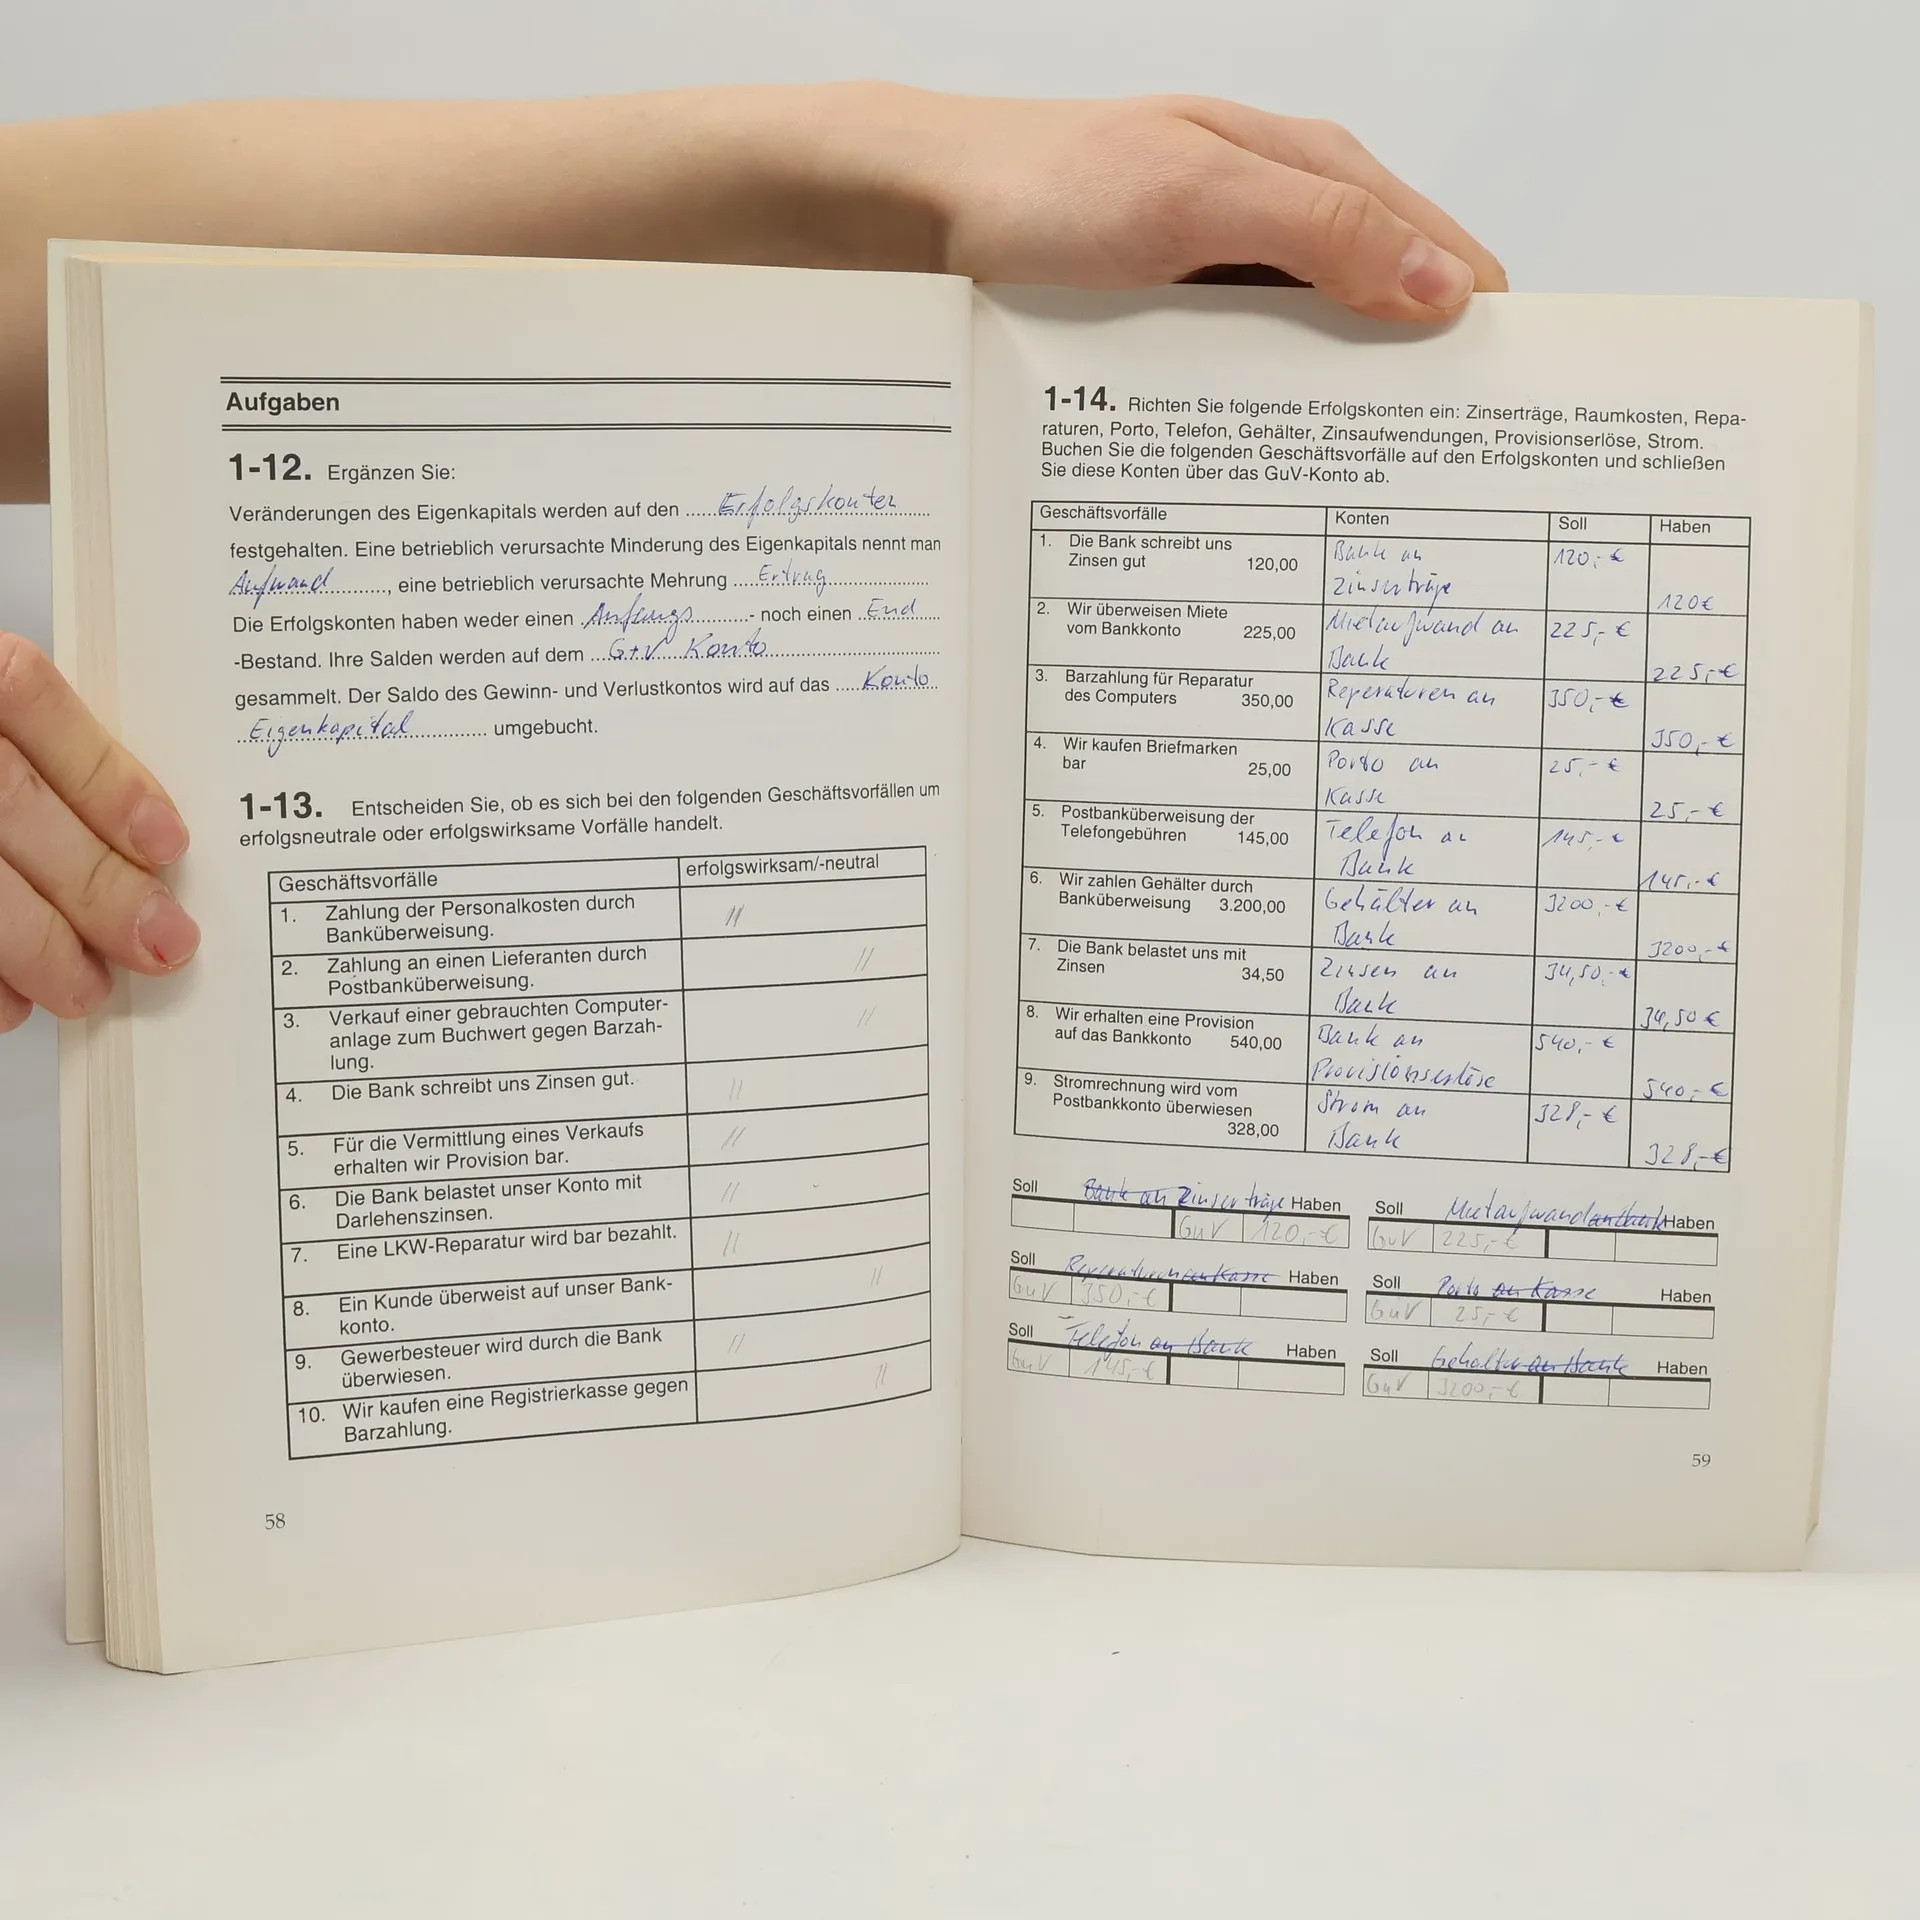 Aufgaben
1-12. Ergänzen Sie:
Veränderungen des Eigenkapitals werden auf den ..... Erfolgskonten
festgehalten. Eine betrieblich verursachte Minderung des Eigenkapitals nennt man
Aufwand, eine betrieblich verursachte Mehrung .... Ertrag
Die Erfolgskonten haben weder einen Anfangs - noch einen End
-Bestand. Ihre Salden werden auf dem G+V Konto
gesammelt. Der Saldo des Gewinn- und Verlustkontos wird auf das ..... Konto
Eigenkapital umgebucht.
1-13. Entscheiden Sie, ob es sich bei den folgenden Geschäftsvorfällen um
erfolgsneutrale oder erfolgswirksame Vorfälle handelt.
Geschäftsvorfälle erfolgswirksam/-neutral
1. Zahlung der Personalkosten durch //
Banküberweisung.
2. Zahlung an einen Lieferanten durch //
Postbanküberweisung.
3. Verkauf einer gebrauchten Computer- //
anlage zum Buchwert gegen Barzah-
lung.
4. Die Bank schreibt uns Zinsen gut. //
5. Für die Vermittlung eines Verkaufs //
erhalten wir Provision bar.
6. Die Bank belastet unser Konto mit //
Darlehenszinsen.
7. Eine LKW-Reparatur wird bar bezahlt. //
8. Ein Kunde überweist auf unser Bank- //
konto.
9. Gewerbesteuer wird durch die Bank //
überwiesen.
10. Wir kaufen eine Registrierkasse gegen //
Barzahlung.
58
1-14. Richten Sie folgende Erfolgskonten ein: Zinserträge, Raumkosten, Repa-
raturen, Porto, Telefon, Gehälter, Zinsaufwendungen, Provisionserlöse, Strom.
Buchen Sie die folgenden Geschäftsvorfälle auf den Erfolgskonten und schließen
Sie diese Konten über das GuV-Konto ab.
Geschäftsvorfälle Konten Soll Haben
1. Die Bank schreibt uns Bank an 120,- €
Zinsen gut 120,00 Zinserträge 120€
2. Wir überweisen Miete Mietaufwand an 225,- €
vom Bankkonto 225,00 Bank 225,-€
3. Barzahlung für Reparatur Reperaturen an 350,- €
des Computers 350,00 Kasse 350,- €
4. Wir kaufen Briefmarken Porto an 25,- €
bar 25,00 Kasse 25,- €
5. Postbanküberweisung der Telefon an 145,- €
Telefongebühren 145,00 Bank 145,- €
6. Wir zahlen Gehälter durch Gehälter an 3200,- €
Banküberweisung 3.200,00 Bank 3200,- €
7. Die Bank belastet uns mit Zinsen an 34,50,- €
Zinsen 34,50 Bank 34,50 €
8. Wir erhalten eine Provision Bank an 540,- €
auf das Bankkonto 540,00 Provisionserlöse 540,- €
9. Stromrechnung wird vom Strom an 328,- €
Postbankkonto überwiesen Bank
328,00 328,-€
Soll Bank an Zinserträge Haben
GuV 120,-€
Soll Mietaufwand an Bank Haben
GuV 225,-€
Soll Reperaturen an Kasse Haben
GuV 350,-€
Soll Porto an Kasse Haben
GuV 25,-€
Soll Telefon an Bank Haben
GuV 145,-€
Soll Gehälter an Bank Haben
GuV 3200,-€
59